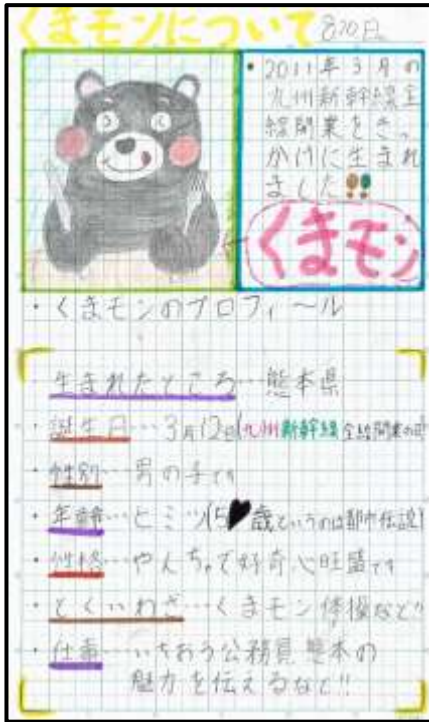 くまモンについて 8/20日
・2011年3月の
九州新幹線全
線開業をきっ
かけに生まれ
ました!!
くまモン
・くまモンのプロフィール
・生まれたところ…熊本県
・誕生日…3月12日(九州新幹線全線開業の日)
・性別…男の子です
・年齢…ヒミツ(5♥歳というのは都市伝説)
・性格…やんちゃで好奇心旺盛です
・とくいわざ…くまモン体操など!!
・仕事…いちおう公務員 熊本の
魅力を伝えるなど!!